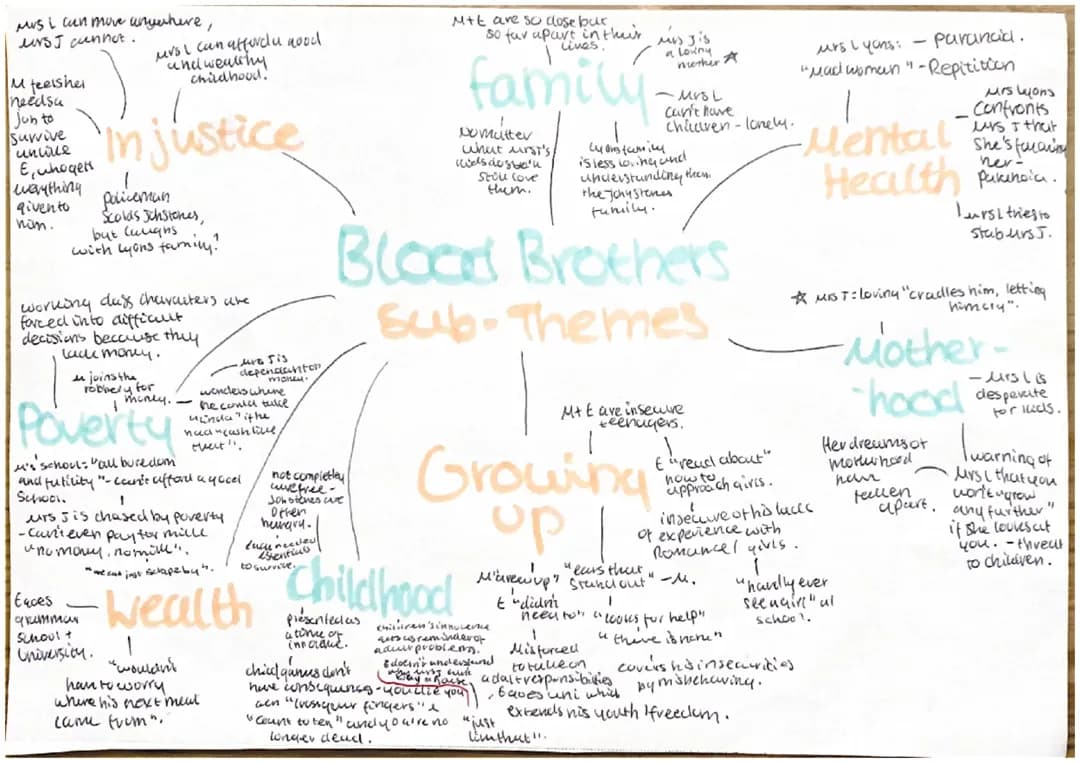 Blood Brothers
Sub-Themes
Mrs L can move anywhere,
Mrs J cannot.
Mrs L can afford a good
and wealthy
childhood.
M feels he
needs a
job to
survive
unlike
E, who gets
everything
given to
him.
Injustice
Policeman
scolds Johstones,
but laughs
with Lyons family!
M+E are so close but
so far apart in their
lives.
Mrs J is
a loving
mother ☆
Family
Mrs L
can't have
children - lonely.
No matter
what Mrs J's
kids do she'll
still love
them.
Lyons family
is less loving and
understanding than
the Johnstones
family.
Mrs Lyons: - paranoid.
"Mad woman" - Repitition
Mental
Health
Mrs Lyons
confronts
Mrs J that
she's following
her -
paranoia.
Mrs L tries to
stab Mrs J.
☆ Mrs J: loving "cradles him, letting
him cry".
Mother-
-hood
- Mrs L is
desperate
for kids.
Her dreams of
motherhood
have
fallen
apart.
warning of
Mrs L that you
won't "grow
any further"
if she looks at
you. - threat
to children.
working class characters are
forced into difficult
decisions because they
lack money.
M joins the
robbery for
money.
Mrs J is
dependant on
money.
wonders where
he could take
Linda "if he
had "cash like
that".
Poverty
M's school: "all boredom
and futility" - can't afford a good
school.
Mrs J is chased by poverty
- can't even pay for milk
"no money, no milk".
Wealth
E goes
grammar
school +
University.
"wouldn't
have to worry
where his next meal
came from".
not completely
carefree -
Johstones are
often
hungry.
Childhood
presented as
a time of
innocence.
children's innocence
acts as reminder of
adult problems.
child games don't
have consequences - you die you
can "cross your fingers" &
"count to ten" and you are no
longer dead.
"just
like that".
Growing
up
M+E are insecure
teenagers.
E "read about"
how to
approach girls.
insecure of his lack
of experience with
romance / girls.
"hardly ever
see a girl" at
school.
"ears that
stand out" - M.
"looks for help"
"there is none"
covers his insecurities
by misbehaving.
M "grew up"
E "didn't
need to"
M is forced
to take on
adult responsibilities
E goes uni which
extends his youth + freedom.